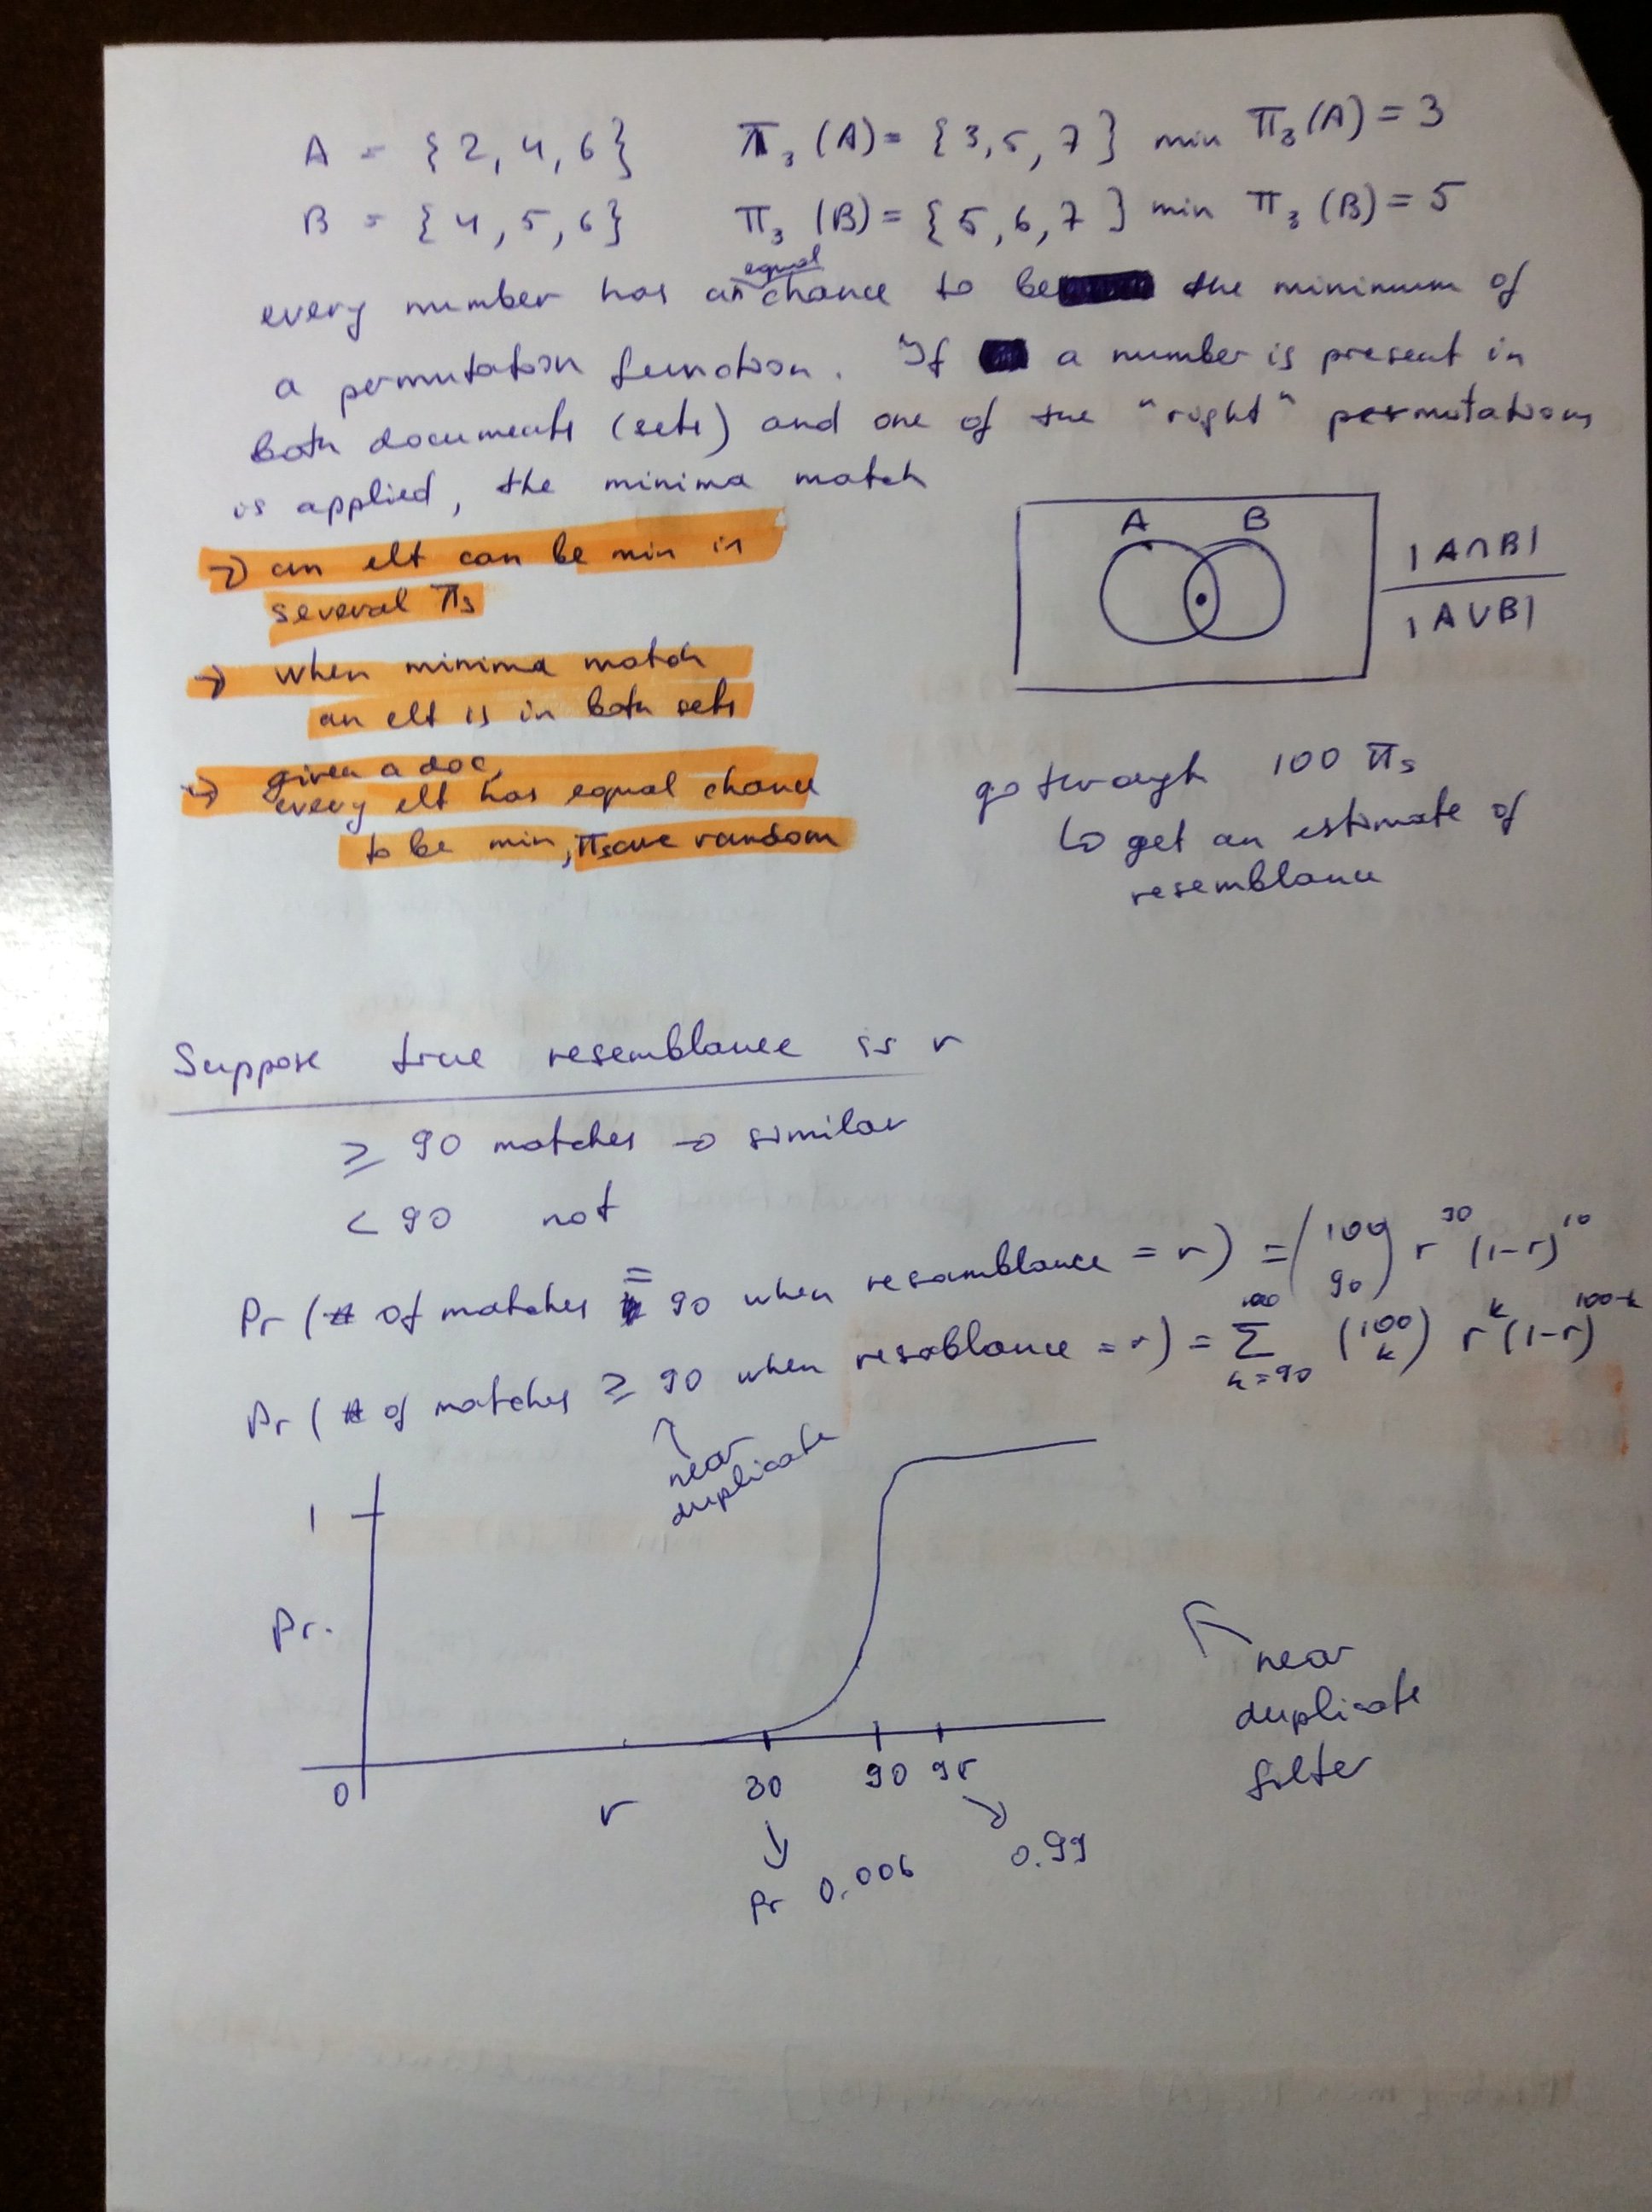 A = {2, 4, 6} π₃ (A) = {3, 5, 7} min π₃ (A) = 3
B = {4, 5, 6} π₃ (B) = {5, 6, 7} min π₃ (B) = 5
equal
every number has an chance to be the minimum of
a permutation function. If a number is present in
both documents (sets) and one of the "right" permutations
is applied, the minima match
→ an elt can be min in
several πs
→ when minima match
an elt is in both sets
→ given a doc,
every elt has equal chance
to be min, πs are random
A B
|A∩B|
|A∪B|
go through 100 πs
↳ get an estimate of
resemblance
Suppose true resemblance is r
≥ 90 matches → similar
< 90 not
Pr (# of matches = 90 when resamblance = r) = (100 90) r^90 (1-r)^10
Pr (# of matches ≥ 90 when resablance = r) = Σ_{k=90}^{100} (100 k) r^k (1-r)^{100-k}
near
duplicate
1
Pr.
0
r
80 90 95
Pr 0.006 0.99
near
duplicate
filter